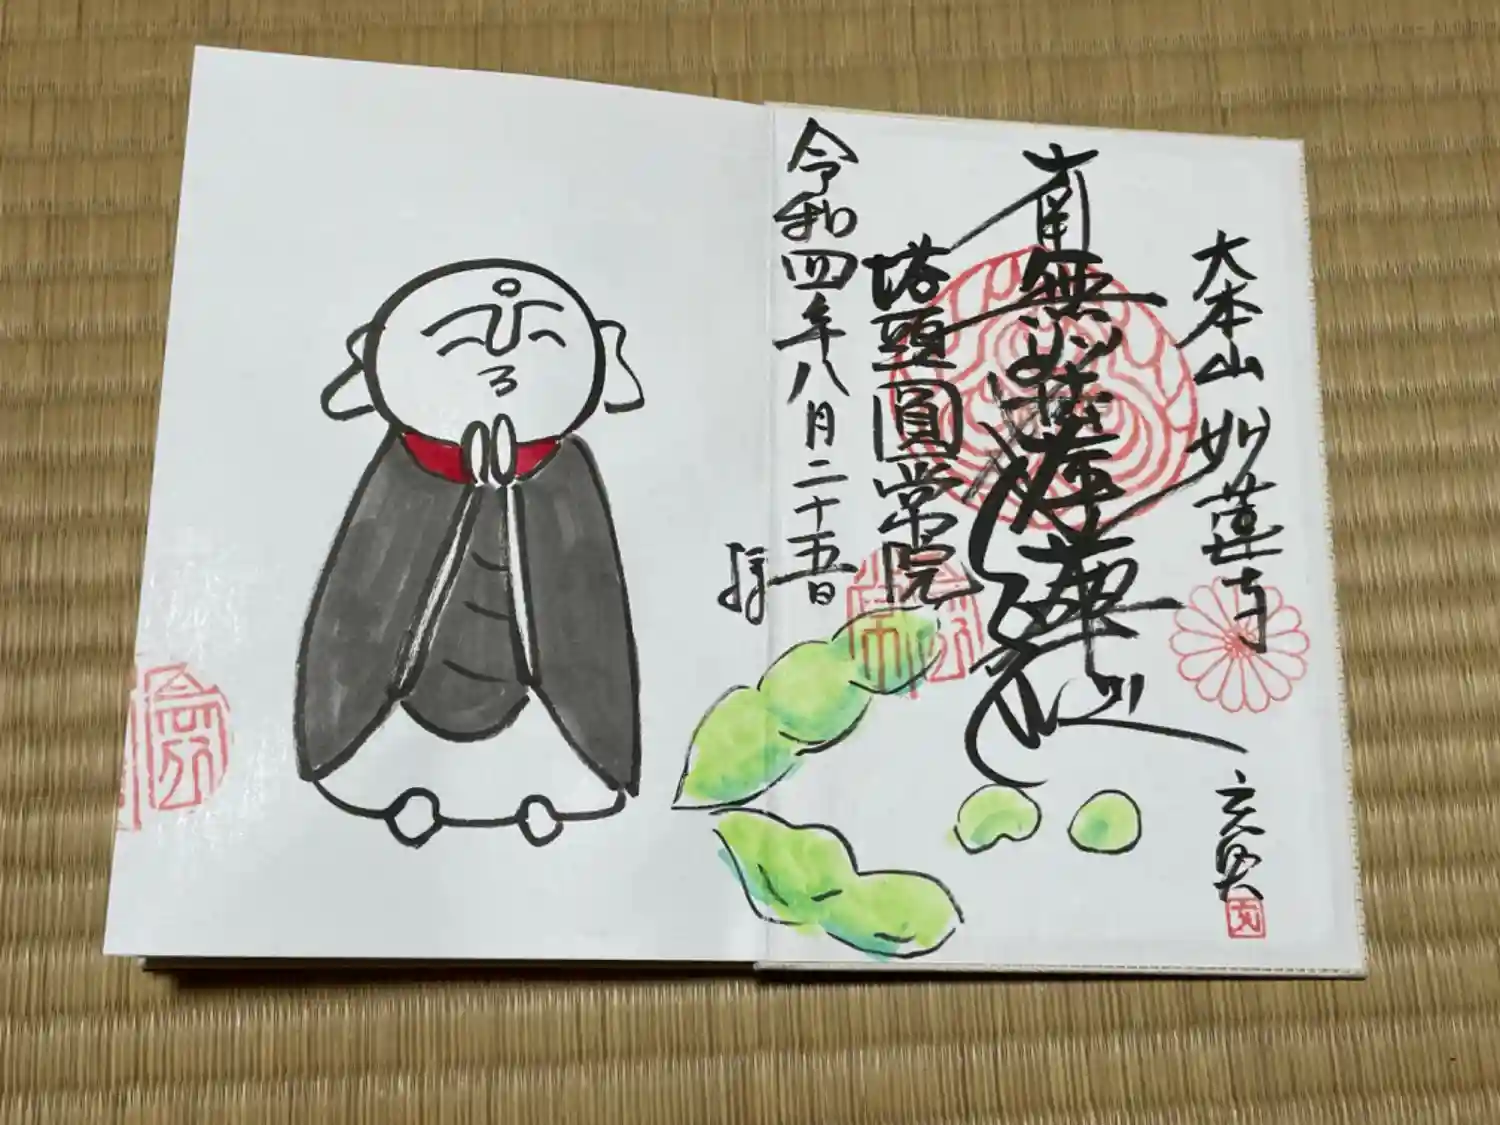 大本山 妙蓮寺
南無妙法蓮華経
塔頭圓常院
令和四年八月二十五日